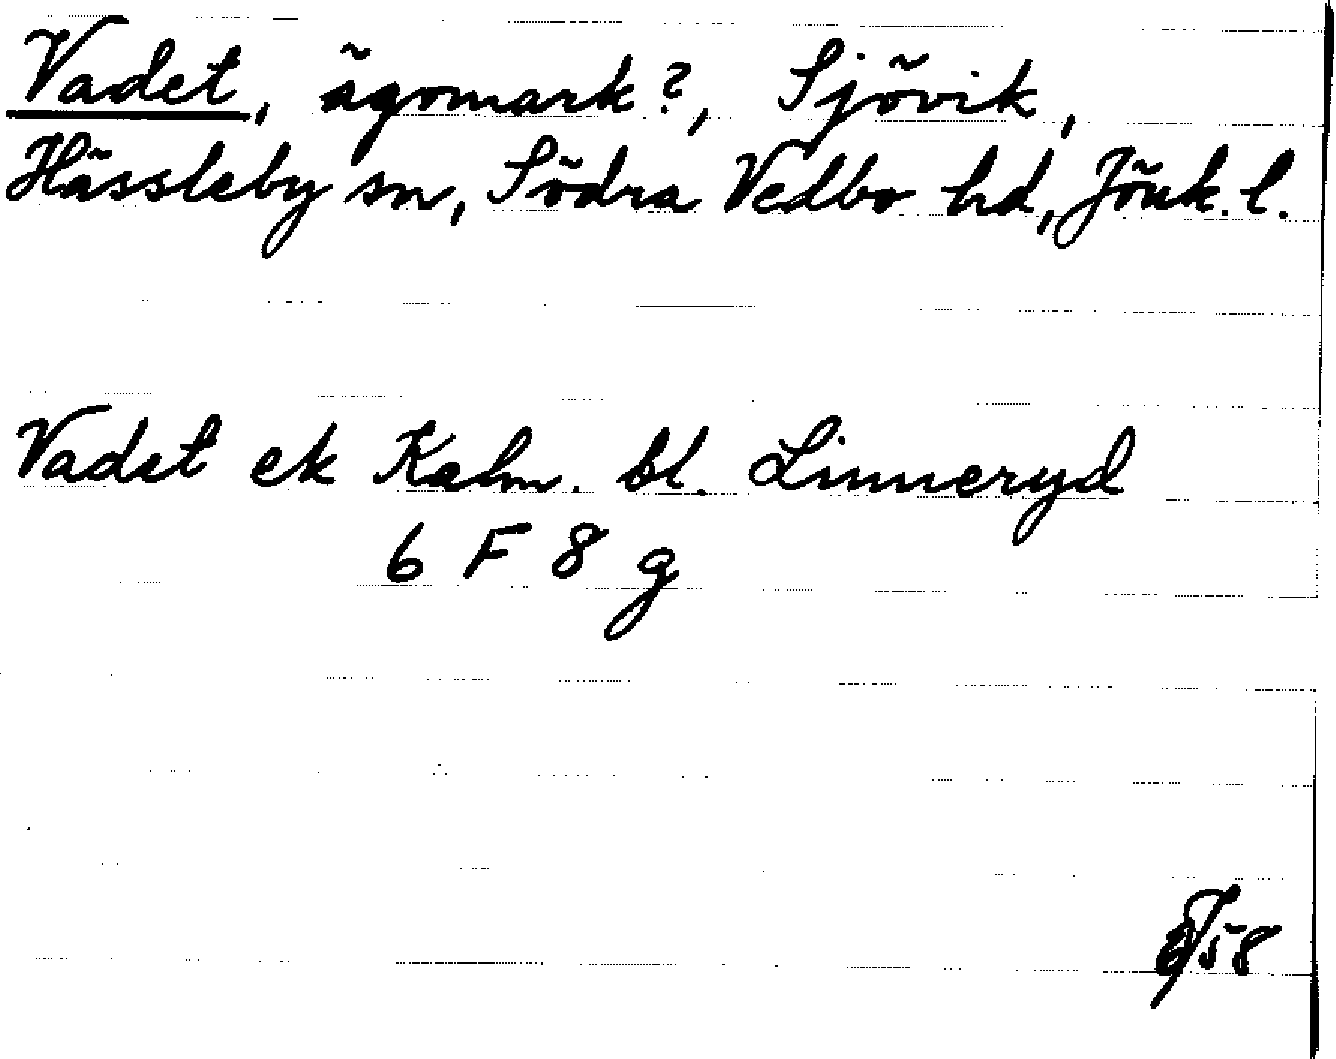 Vadet, ägomark?, Sjövik,
Hässleby sn, Södra Vedbo hd, Jönk. l.
Vadet ek Kalm. bl. Linneryd
6 F 8 g
58